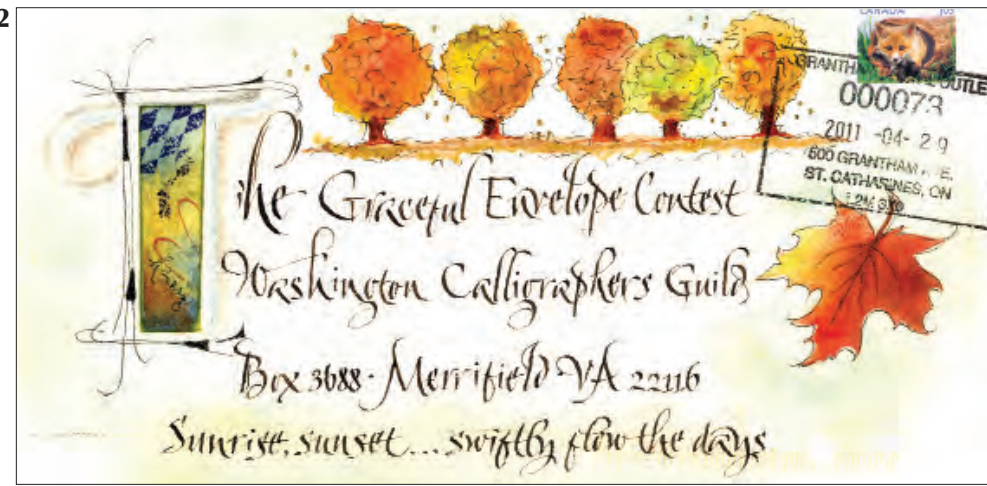 2
CANADA
000073
2011 -04- 29
600 GRANTHAM
ST. CATHARINES, ON
The Graceful Envelope Contest
Washington Calligraphers Guild
Box 3688 · Merrifield VA 22116
Sunrise, sunset... swiftly flow the days